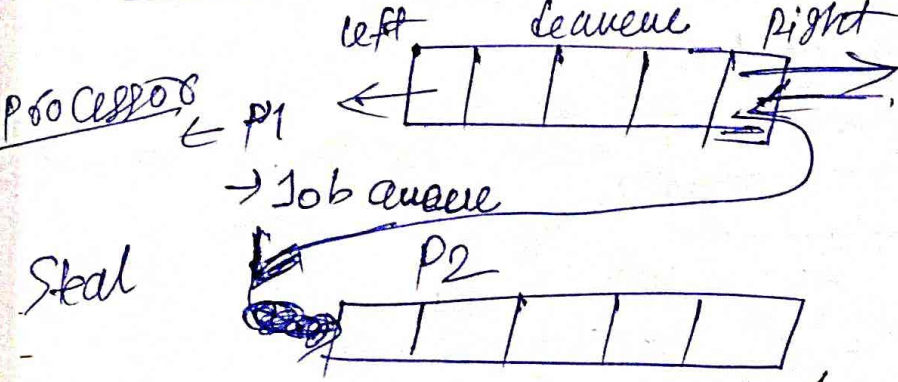 left Dequeue Right
Processor
← P1
→ Job queue
Steal
P2